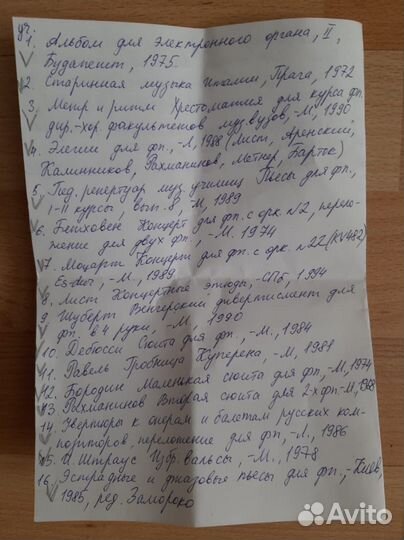 1. Альбом для электронного органа, II,
Будапешт, 1975
2. Старинная музыка Италии, Прага, 1972
3. Метр и ритм Хрестоматия для курса фп.
дир.-хор. факультетов муз. вузов, -М, 1990
4. Элегии для фп., -Л, 1988 (Лист, Аренский,
Калинников, Рахманинов, Метнер, Барток)
5. Пед. репертуар муз. училищ Пьесы для фп.,
I-II курсы, вып. 8, -М, 1989
6. Бетховен Концерт для фп. с орк. №2, перело-
жение для двух фп., -М. 1974
7. Моцарт Концерт для фп. с орк. №22 (KV482)
Es-dur, -М., 1989
8. Лист Концертные этюды, -СПб, 1994
9. Шуберт Венгерский дивертисмент для
фп. в 4 руки, -М., 1990
10. Дебюсси Сюита для фп., -М., 1984
11. Равель Гробница Куперена, -М., 1981
12. Бородин Маленькая сюита для фп., -М, 1974
13 Рахманинов Вторая сюита для 2-х фп. -М, 1968
14. Увертюры к операм и балетам русских ком-
позиторов, переложение для фп., -Л., 1986
15. И. Штраус Избр. вальсы, -М., 1978
16. Эстрадные и джазовые пьесы для фп., -Киев,
1985, ред. Замороко
Avito